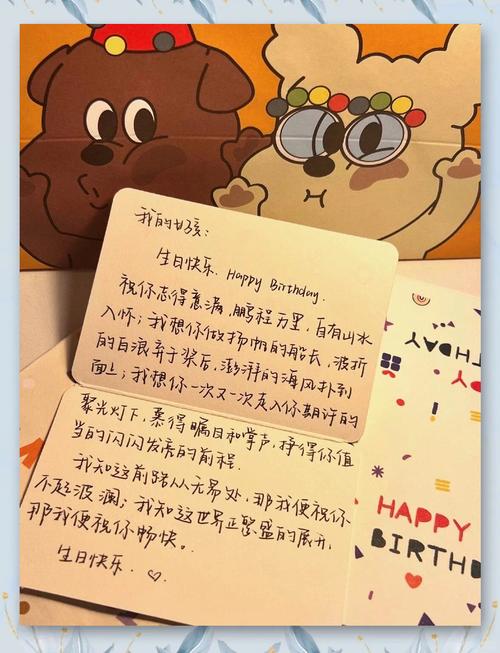 我的女孩:
生日快乐. Happy Birthday.
祝你志得意满,鹏程万里,自有山水
入怀;我想你做扬帆的船长,波折
的白浪弃于桨后,澎湃的海风扑到
面上;我想你一次又一次走入你期许的
聚光灯下,慕得瞩目和掌声,挣得你值
当的闪闪发亮的前程.
我知这前路从无易处,那我便祝你
不起波澜;我知这世界正繁盛的展开,
那我便祝你畅快。
生日快乐. ♡
HAPPY
BIRTHD
THDAY